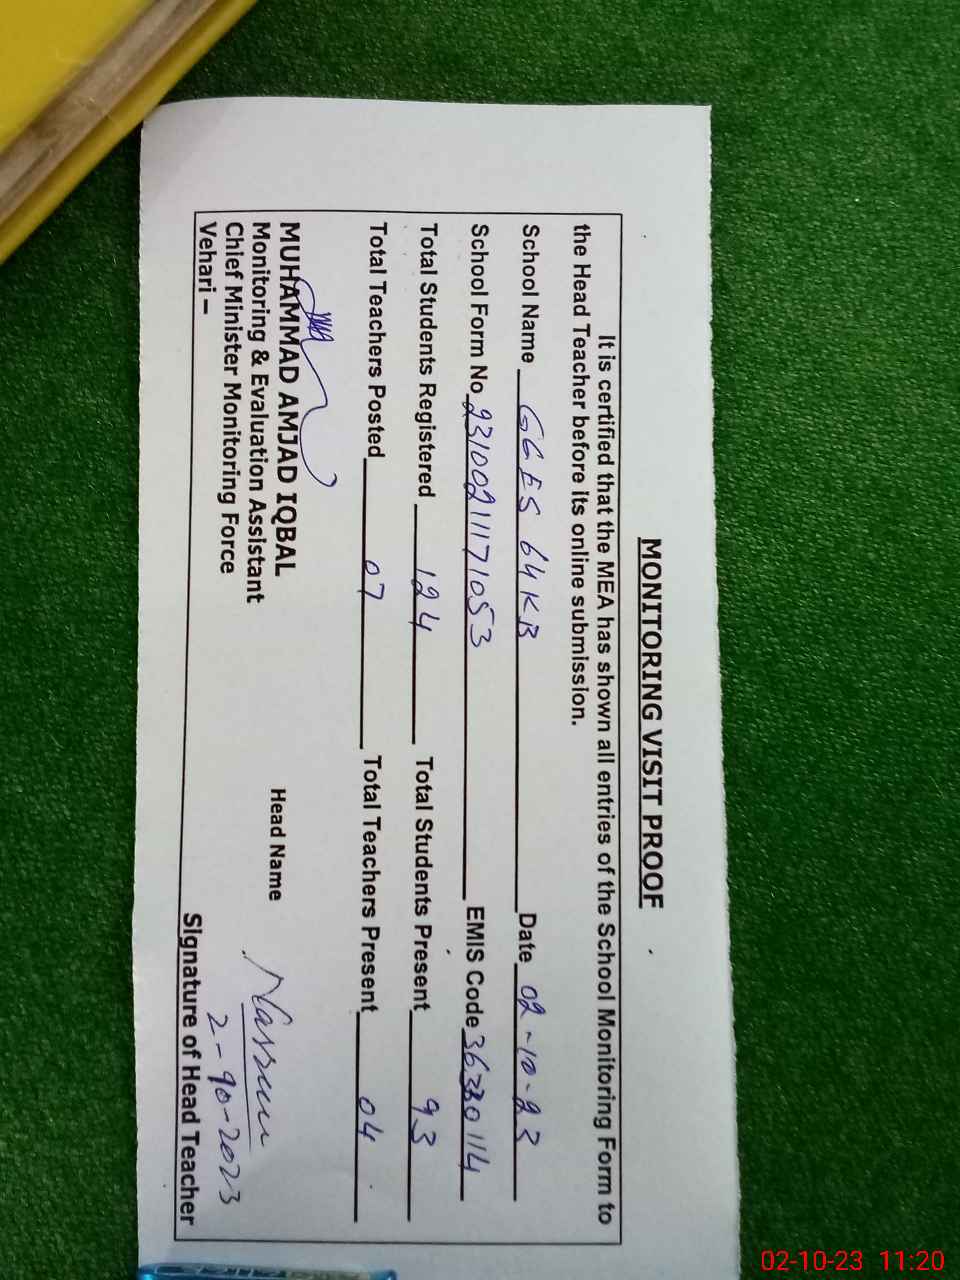 MONITORING VISIT PROOF
It is certified that the MEA has shown all entries of the School Monitoring Form to
the Head Teacher before its online submission.
School Name GGES 64KB Date 02-10-23
School Form No 23100211171053 EMIS Code 36330114
Total Students Registered 124 Total Students Present 93
Total Teachers Posted 07 Total Teachers Present 04
MUHAMMAD AMJAD IQBAL
Monitoring & Evaluation Assistant Head Name
Chief Minister Monitoring Force 2-10-2023
Vehari – Signature of Head Teacher
02-10-23 11:20